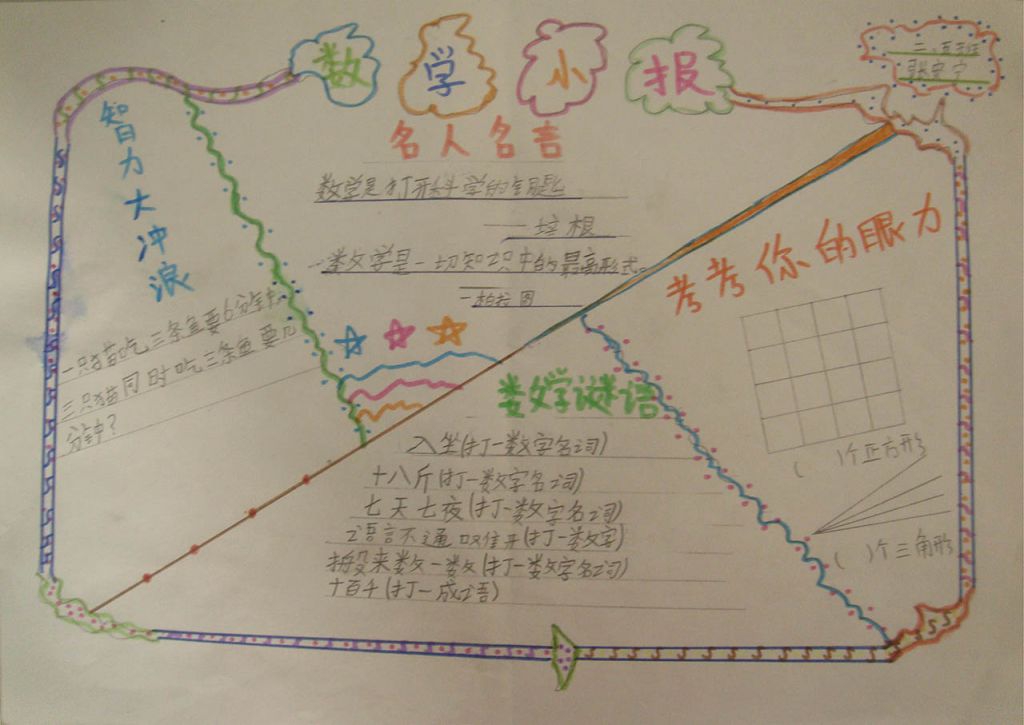 数学小报
二、五班
名人名言
数学是打开科学的钥匙
——培根
数学是一切知识中的最高形式。
—柏拉图
智力大冲浪
一只猫吃三条鱼要6分钟,
三只猫同时吃三条鱼要几
分钟?
考考你的眼力
( )个正方形
( )个三角形
数学谜语
入坐(打一数字名词)
十八斤(打一数字名词)
七天七夜(打一数字名词)
(打一数字)
搬来数一数(打一数字名词)
十百千(打一成语)